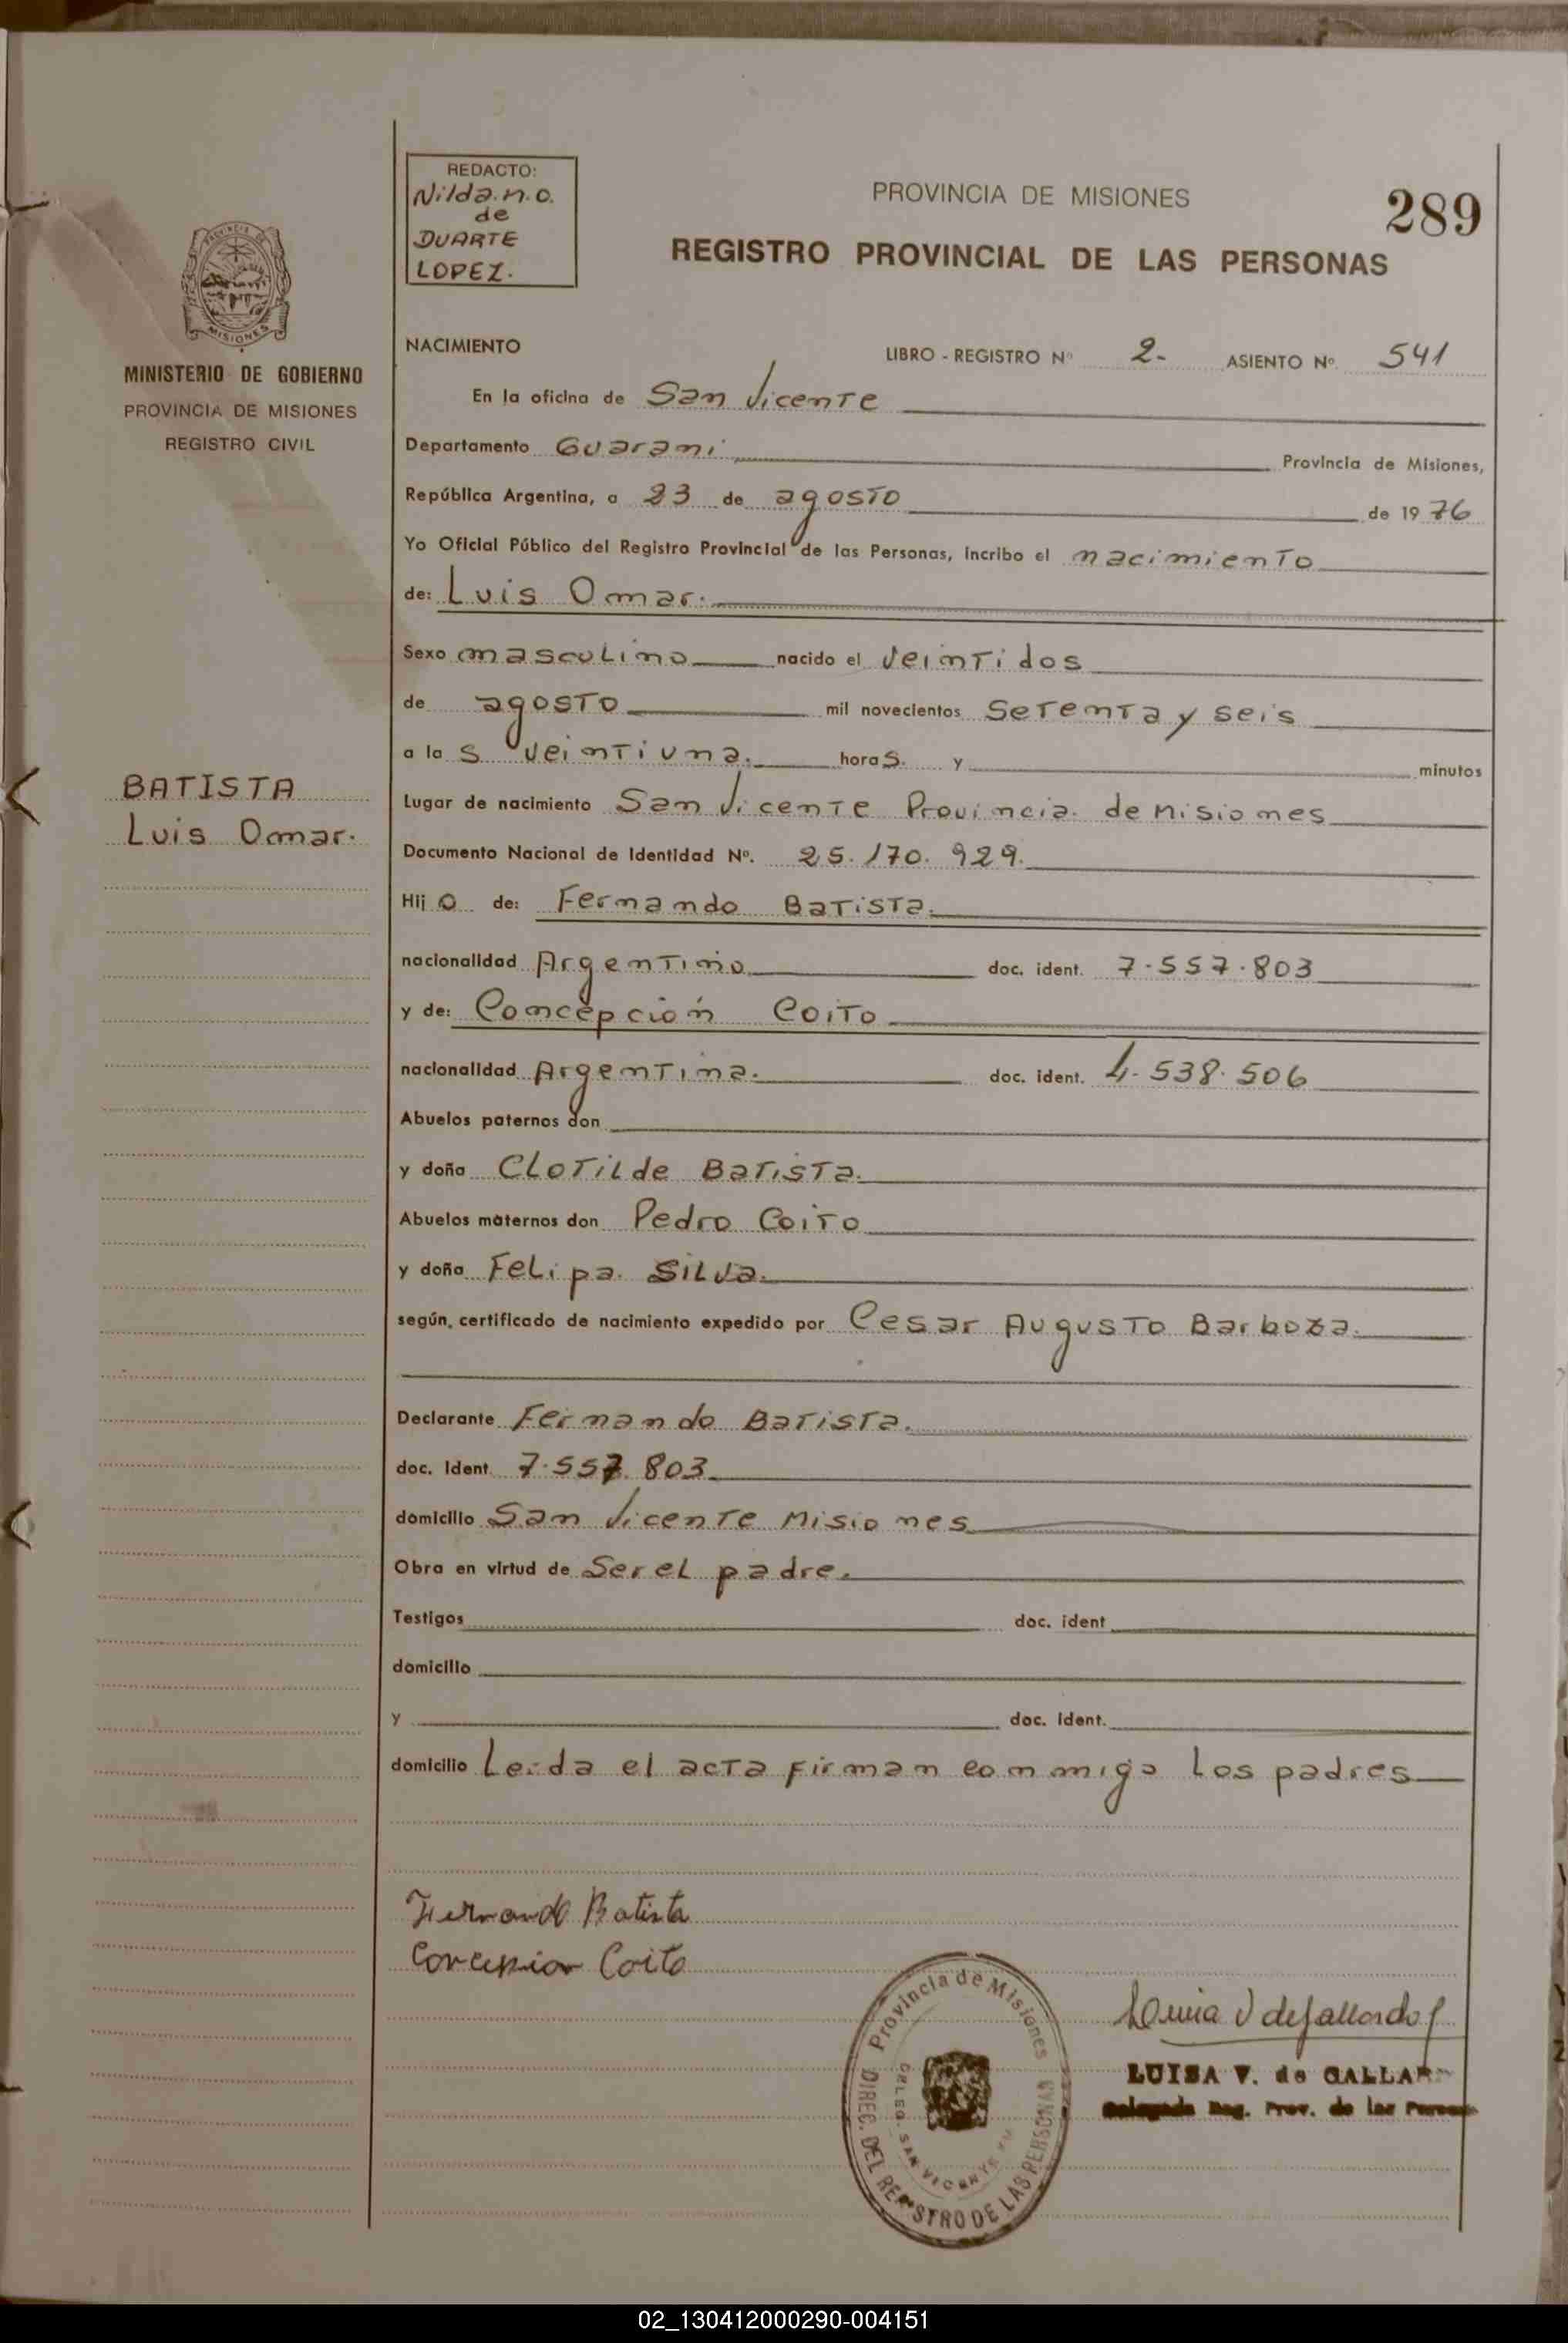 REDACTO:
Nilda.n.o.
de
DUARTE
LOPEZ.
PROVINCIA DE MISIONES
289
REGISTRO PROVINCIAL DE LAS PERSONAS
MISIONES
MINISTERIO DE GOBIERNO
PROVINCIA DE MISIONES
REGISTRO CIVIL
NACIMIENTO LIBRO - REGISTRO Nº 2- ASIENTO Nº. 541
En la oficina de San Vicente
Departamento Guarani Provincia de Misiones,
República Argentina, a 23 de agosto de 1976
Yo Oficial Público del Registro Provincial de las Personas, incribo el nacimiento
de: Luis Omar.
Sexo masculino nacido el veintidos
de agosto mil novecientos setenta y seis
a la s veintiuna. hora s. y minutos
BATISTA
Luis Omar.
Lugar de nacimiento San Vicente Provincia de Misiones
Documento Nacional de Identidad Nº. 25.170.929.
Hij o de: Fernando Batista.
nacionalidad Argentino doc. ident. 7.557.803
y de: Concepción Coito
nacionalidad Argentina. doc. ident. 4.538.506
Abuelos paternos don
y doña Clotilde Batista.
Abuelos maternos don Pedro Coito
y doña Felipa Silva.
según, certificado de nacimiento expedido por Cesar Augusto Barboza.
Declarante Fernando Batista.
doc. Ident. 7.557.803
domicilio San Vicente Misiones
Obra en virtud de Ser el padre.
Testigos doc. ident
domicilio
y doc. Ident.
domicilio Leida el acta firman conmigo los padres
Fernando Batista
Concepcion Coito
Provincia de Misiones
DIREC. DEL REGISTRO DE LAS PERSONAS
DELEG. SAN VICENTE
LUISA V. de GALLAR
Delegada Reg. Prov. de las Person
02_130412000290-004151